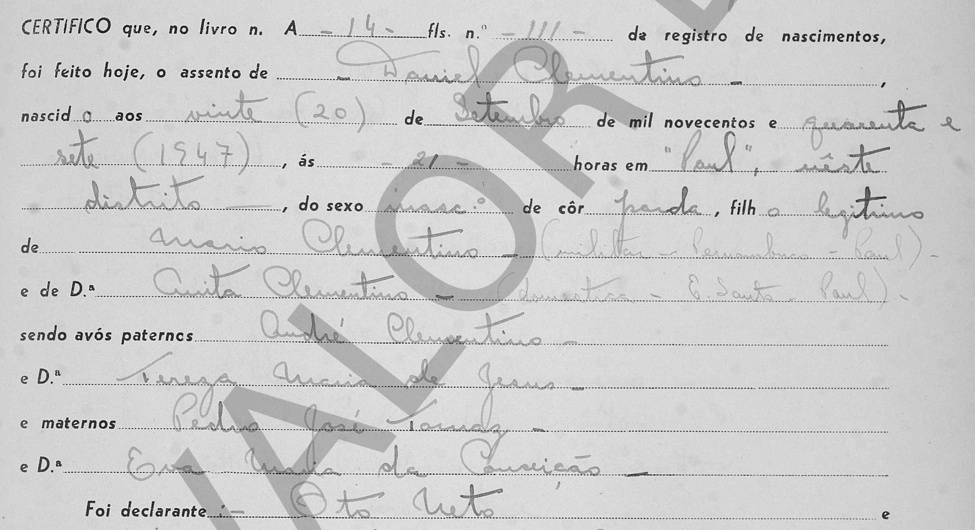 CERTIFICO que, no livro n. A - 14 - fls. n.º - 111 - de registro de nascimentos,
foi feito hoje, o assento de - Daniel Clementino - ,
nascid o aos vinte (20) de Setembro de mil novecentos e quarenta e
sete (1947) , ás - 21 - horas em "Paul", nêste
distrito — , do sexo masc.º de côr parda , filh o legitimo
de Mario Clementino - (militar - Pernambuco - Paul) -
e de D.ª Anita Clementino - (domestica - E. Santo - Paul) -
sendo avós paternos André Clementino -
e D.ª Tereza Maria de Jesus -
e maternos Pedro José Tomaz -
e D.ª Eva Maria da Conceição -
Foi declarante :- Oto Neto e